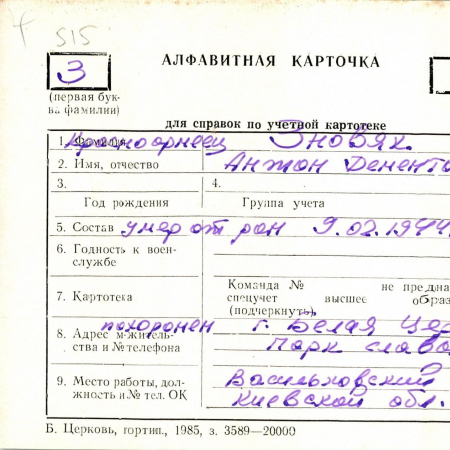 515
З
АЛФАВИТНАЯ КАРТОЧКА
(первая бук-
ва фамилии)
для справок по учетной картотеке
1. Фамилия Красноармеец Зновяк
2. Имя, отчество Антон Демента
3. 4.
Год рождения Группа учета
5. Состав умер от ран 9.02.1944
6. Годность к воен-
службе
Команда № не предна
7. Картотека спецучет высшее образ
(подчеркнуть)
похоронен г. Белая Цер
8. Адрес м-житель-
ства и № телефона Парк слава
9. Место работы, дол- Васильковский
жность и № тел. ОК Киевской обл.
Б. Церковь, гортип., 1985, з. 3589—20000